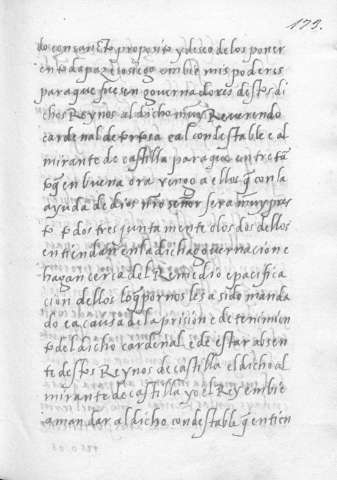 179.
do con sancto proposito y deseo de los poner
en toda paz e sosiego embie mis poderes
para que fuesen governadores destos di
chos Reynos al dicho muy Reverendo
cardenal de tortosa e al condestable e al
mirante de castilla para que entre tā
to q̄ en buena ora vengo a ellos q̄ con la
ayuda de dios nr̄o señor sera muy pres
to todos tres juntamente o los dos dellos
entiendan en la dicha governacion e
hagan cerca del Remedio e pacifica
cion dellos lo q̄ por nos les a sido manda
do e a causa de la prision e detenimien
to del dicho cardenal e de estar absen
te destos Reynos de castilla el dicho al
mirante de castilla yo el Rey embie
a mandar al dicho condestable q̄ entien